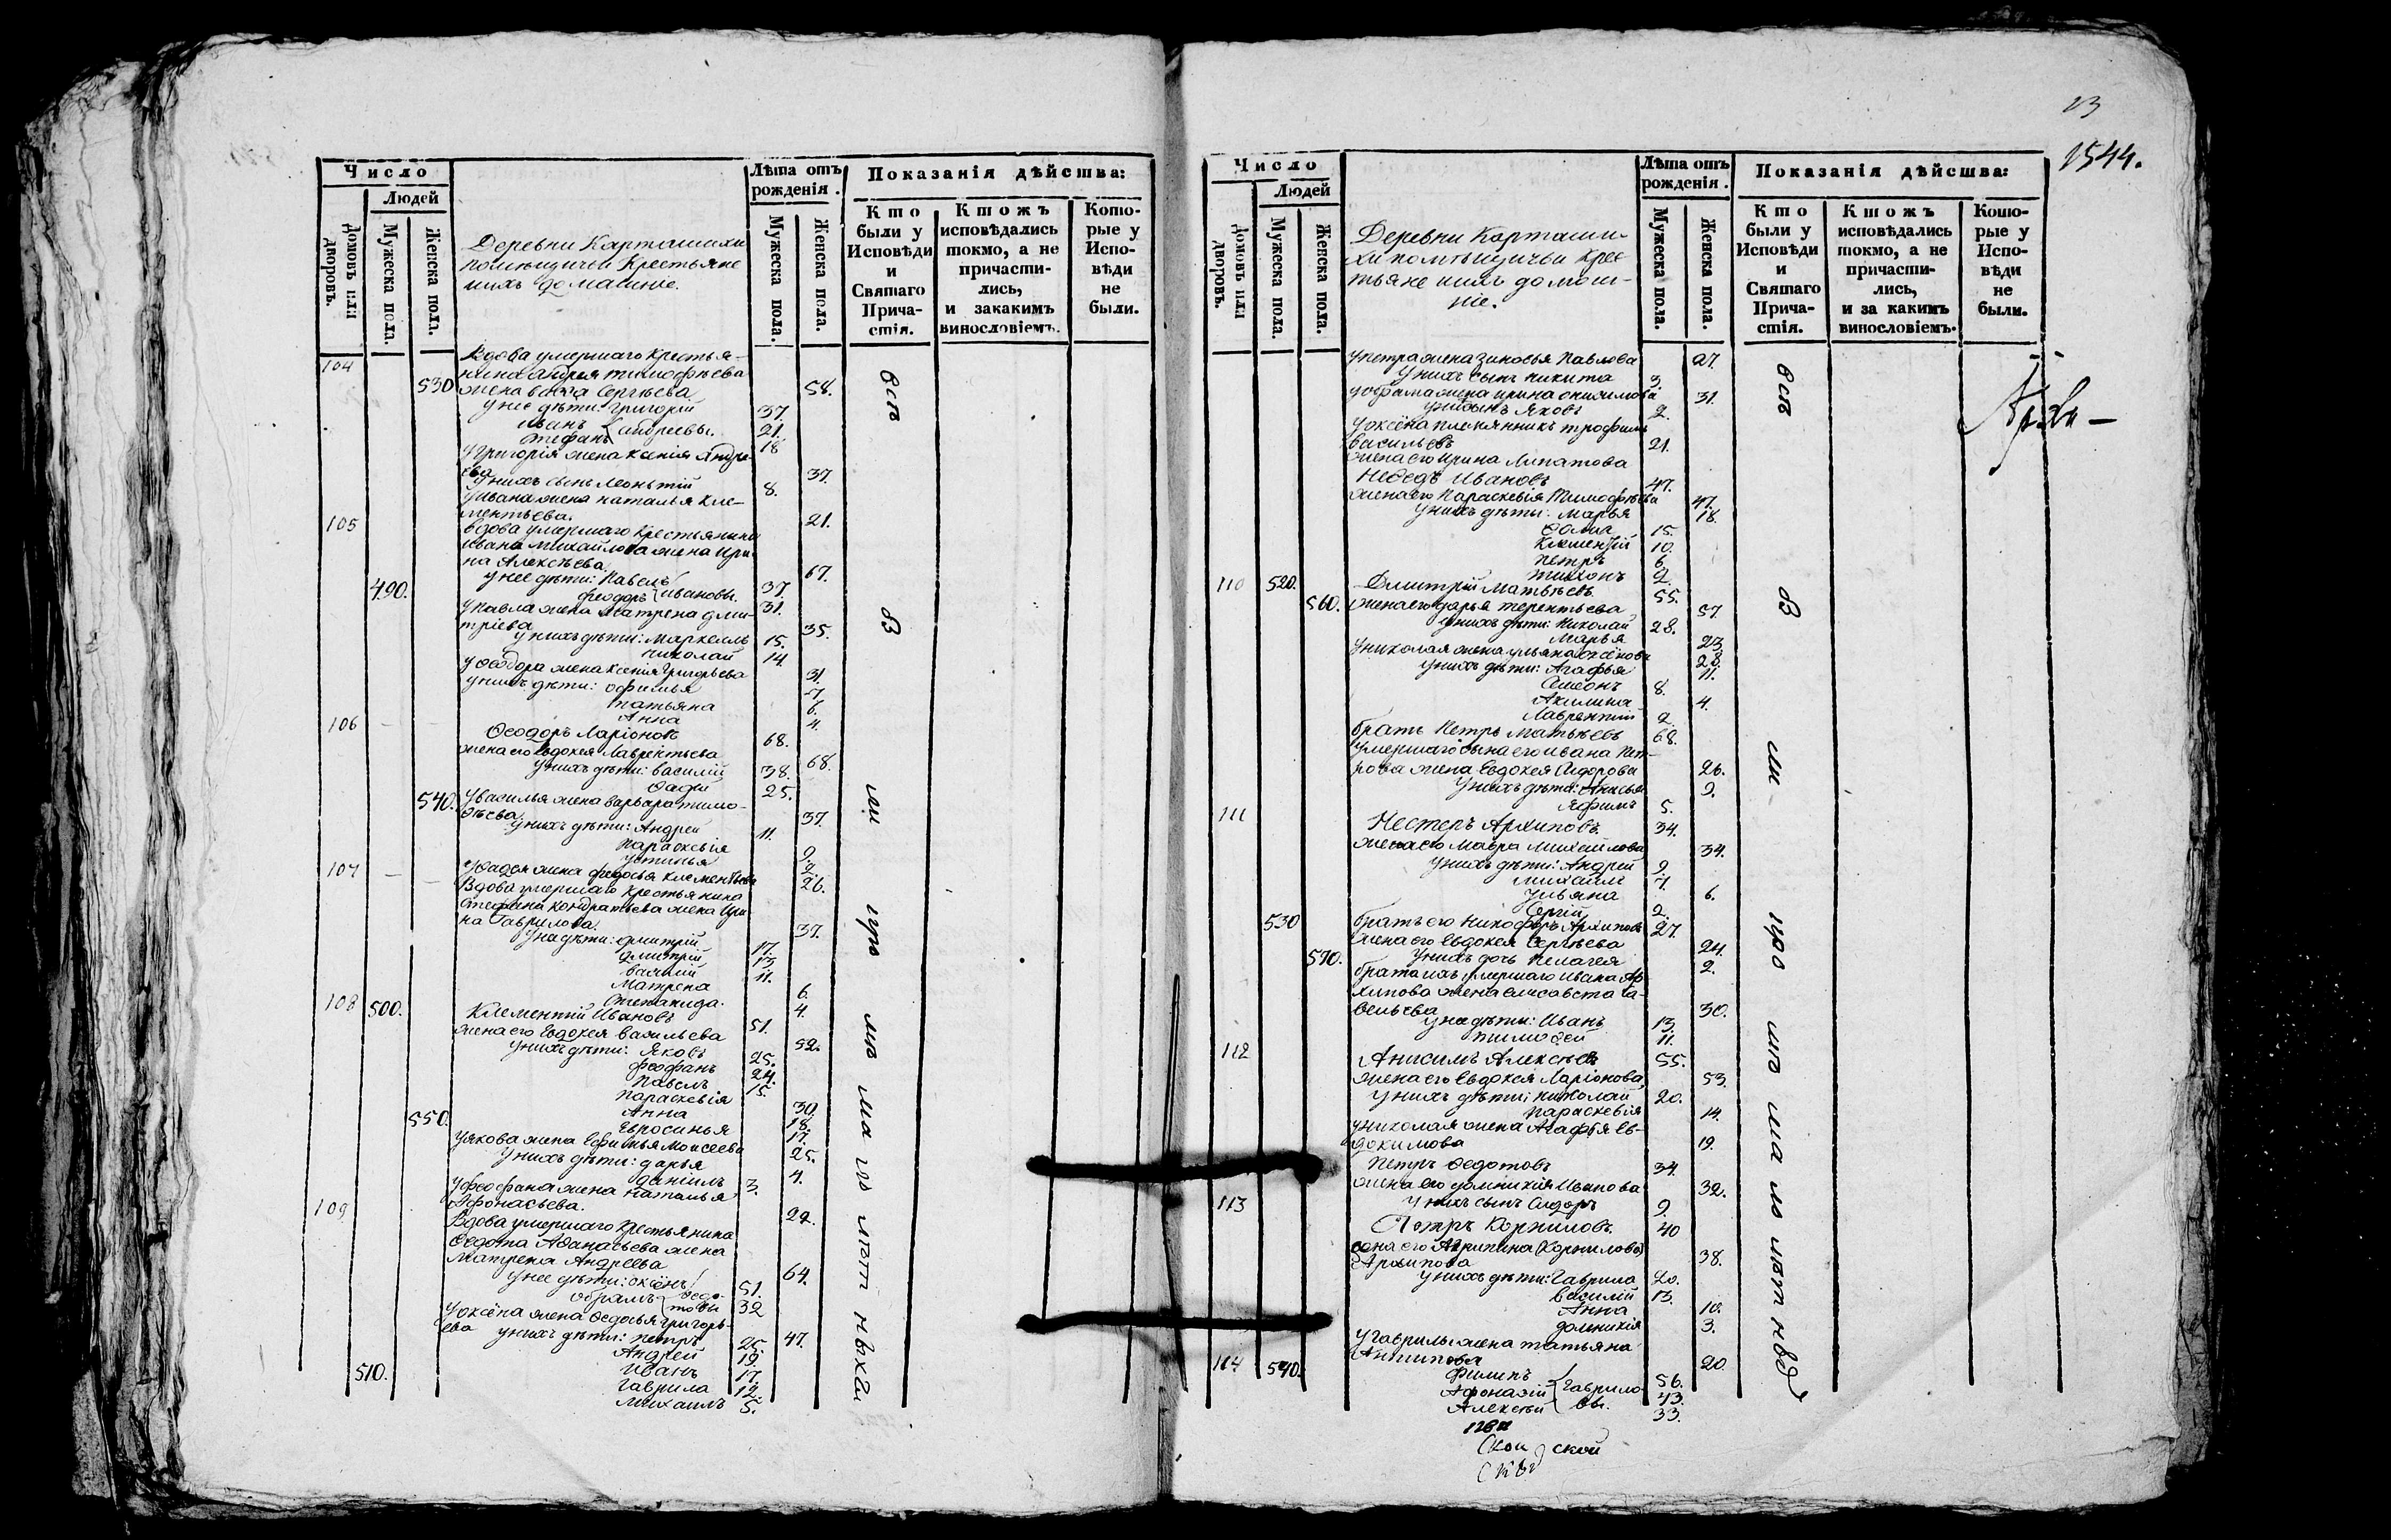 Число
Людей
Домовъ или дворовъ.
Мужеска пола.
Женска пола.
Деревни Карташихи
помѣщичьи Крестьяне
нихъ домашніе.
Лѣта отъ рожденія.
Мужеска пола.
Женска пола.
Показанія дѣйства:
Кто были у Исповѣди и Святаго Причастія.
Ктожъ исповѣдались токмо, а не причастились, и закакимъ винословіемъ.
Которые у Исповѣди не были.
104 Вдова умершаго Крестья-
нина Андрея тимофѣева
530 жена Сергѣева 58.
у нее дѣти: григорій 37.
иванъ 21.
стефанъ андреевы. 18
у Григорія жена ксенія Андре-
ева 37.
у нихъ сынъ Леонтій 8.
у ивана жена наталья кле-
ментьева. 21.
105 вдова умершаго Крестьянина
ивана михайлова жена Ири-
на Алексѣева. 67.
у нее дѣти: Павелъ 37.
490. феодоръ ивановы. 31.
у павла жена матрена дми-
тріева 35.
у нихъ дѣти: маркеллъ 15.
николай 14
у Ѳеодора жена ксенія Григорьева 31.
у нихъ дѣти: офимья 7.
татьяна 6.
Анна 4.
106 Ѳеодоръ Ларіоновъ 68.
жена его Евдокея Лаврентьева 68.
у нихъ дѣти: василій 38.
Ѳадѣй 25.
540. у василья жена варвара тимо-
ѳѣева. 37.
у нихъ дѣти: Андрей 11.
параскевія 9.
устинья 2.
у Ѳадея жена федосья клементьева 26.
107 Вдова умершаго крестьянина
Стефана кондратьева жена Ири-
на Гаврилова. 37.
у ня дѣти: дмитрій 17.
дмитрій 13.
василій 11.
Матрена 6.
Степанида. 4.
108 500. Клементій Ивановъ 51.
жена его Евдокея васильева 52.
у нихъ дѣти: Яковъ 25.
феофанъ 24.
Павелъ 15.
параскевія 30.
Анна 18.
550. Евросинья 17.
у якова жена Ефимья Моисеева 25.
у нихъ дѣти: дарья 4.
даніилъ 3.
у феофана жена наталья
Афонасьева. 22.
109 Вдова умершаго Крестьянина
Ѳедота Аѳанасьева жена
матрена Андреева 64.
у нее дѣти: оксёнъ 51.
обрамъ Ѳедо-
товы 32
у оксёна жена Ѳедосья григорь-
ева 47.
у нихъ дѣти: петръ 25.
Андрей 19.
510. Иванъ 17.
Гаврила 12.
михаилъ 5.
23
1544.
Число
Людей
Домовъ или дворовъ.
Мужеска пола.
Женска пола.
Деревни Карташи-
хи помѣщичьи Крес-
тьяне нихъ домаш-
ніе.
Лѣта отъ рожденія.
Мужеска пола.
Женска пола.
Показанія дѣйства:
Кто были у Исповѣди и Святаго Причастія.
Ктожъ исповѣдались токмо, а не причастились, и за какимъ винословіемъ.
Которые у Исповѣди не были.
у петра жена Зиновья Павлова 27.
у нихъ сынъ никита 3.
у обрама жена ирина онисимова 31.
Яковъ 2.
у оксёна племянникъ трофимъ
васильевъ 21.
жена его Ирина Липатова
Ивановъ 47.
жена его Параскевія Тимофѣева 47.
у нихъ дѣти: марья 18.
Ѳома 15.
Клементій 10.
петръ 6.
тихонъ 2.
110 520. Дмитрій Матвѣевъ 55.
560. жена его дарья терентьева 57.
у нихъ дѣти: николай 28.
марья 23.
у николая жена ульяна оксёнова 28.
у нихъ дѣти: Агафья 11.
Симеонъ 8.
Акилина 4.
Лаврентій 2.
братъ Петръ Матвѣевъ 68.
умершаго сына его ивана пет-
рова жена Евдокея Сидорова 26.
у нихъ дѣти: Анисья 9.
Яфимъ 5.
111 Нестеръ Архиповъ. 34.
жена его мавра михайлова 34.
у нихъ дѣти: Андрей 9.
михаилъ 7.
ульяна 6.
Сергій 2.
530 братъ его никофоръ Архиповъ 27.
жена его Евдокея Сергѣева 24.
570. у нихъ дочь пелагея 2.
брата ихъ умершаго ивана Ар-
хипова жена елисавета са-
вельева 30.
у ня дѣти: Иванъ 13.
тимоѳей 11.
112 Анисимъ Алексѣевъ 55.
жена его Евдокея Ларіонова, 53.
у нихъ дѣти: николай 20.
параскевія 14.
у николая жена Агафья Ев-
докимова 19.
петръ Ѳедотовъ 34.
жена его домникія Иванова 32.
113 у нихъ сынъ Сидоръ 9.
Петръ Корниловъ. 40
жена его Агрипина (Корнилова)
Архипова 38.
у нихъ дѣти: Гаврила 20.
василій 13.
Анна 10.
домникія 3.
у гаврилы жена татьяна
Антипова 20.
114 540. Филипъ 56.
Афонасій Гаврило- 43.
Алексѣй вы. 33.